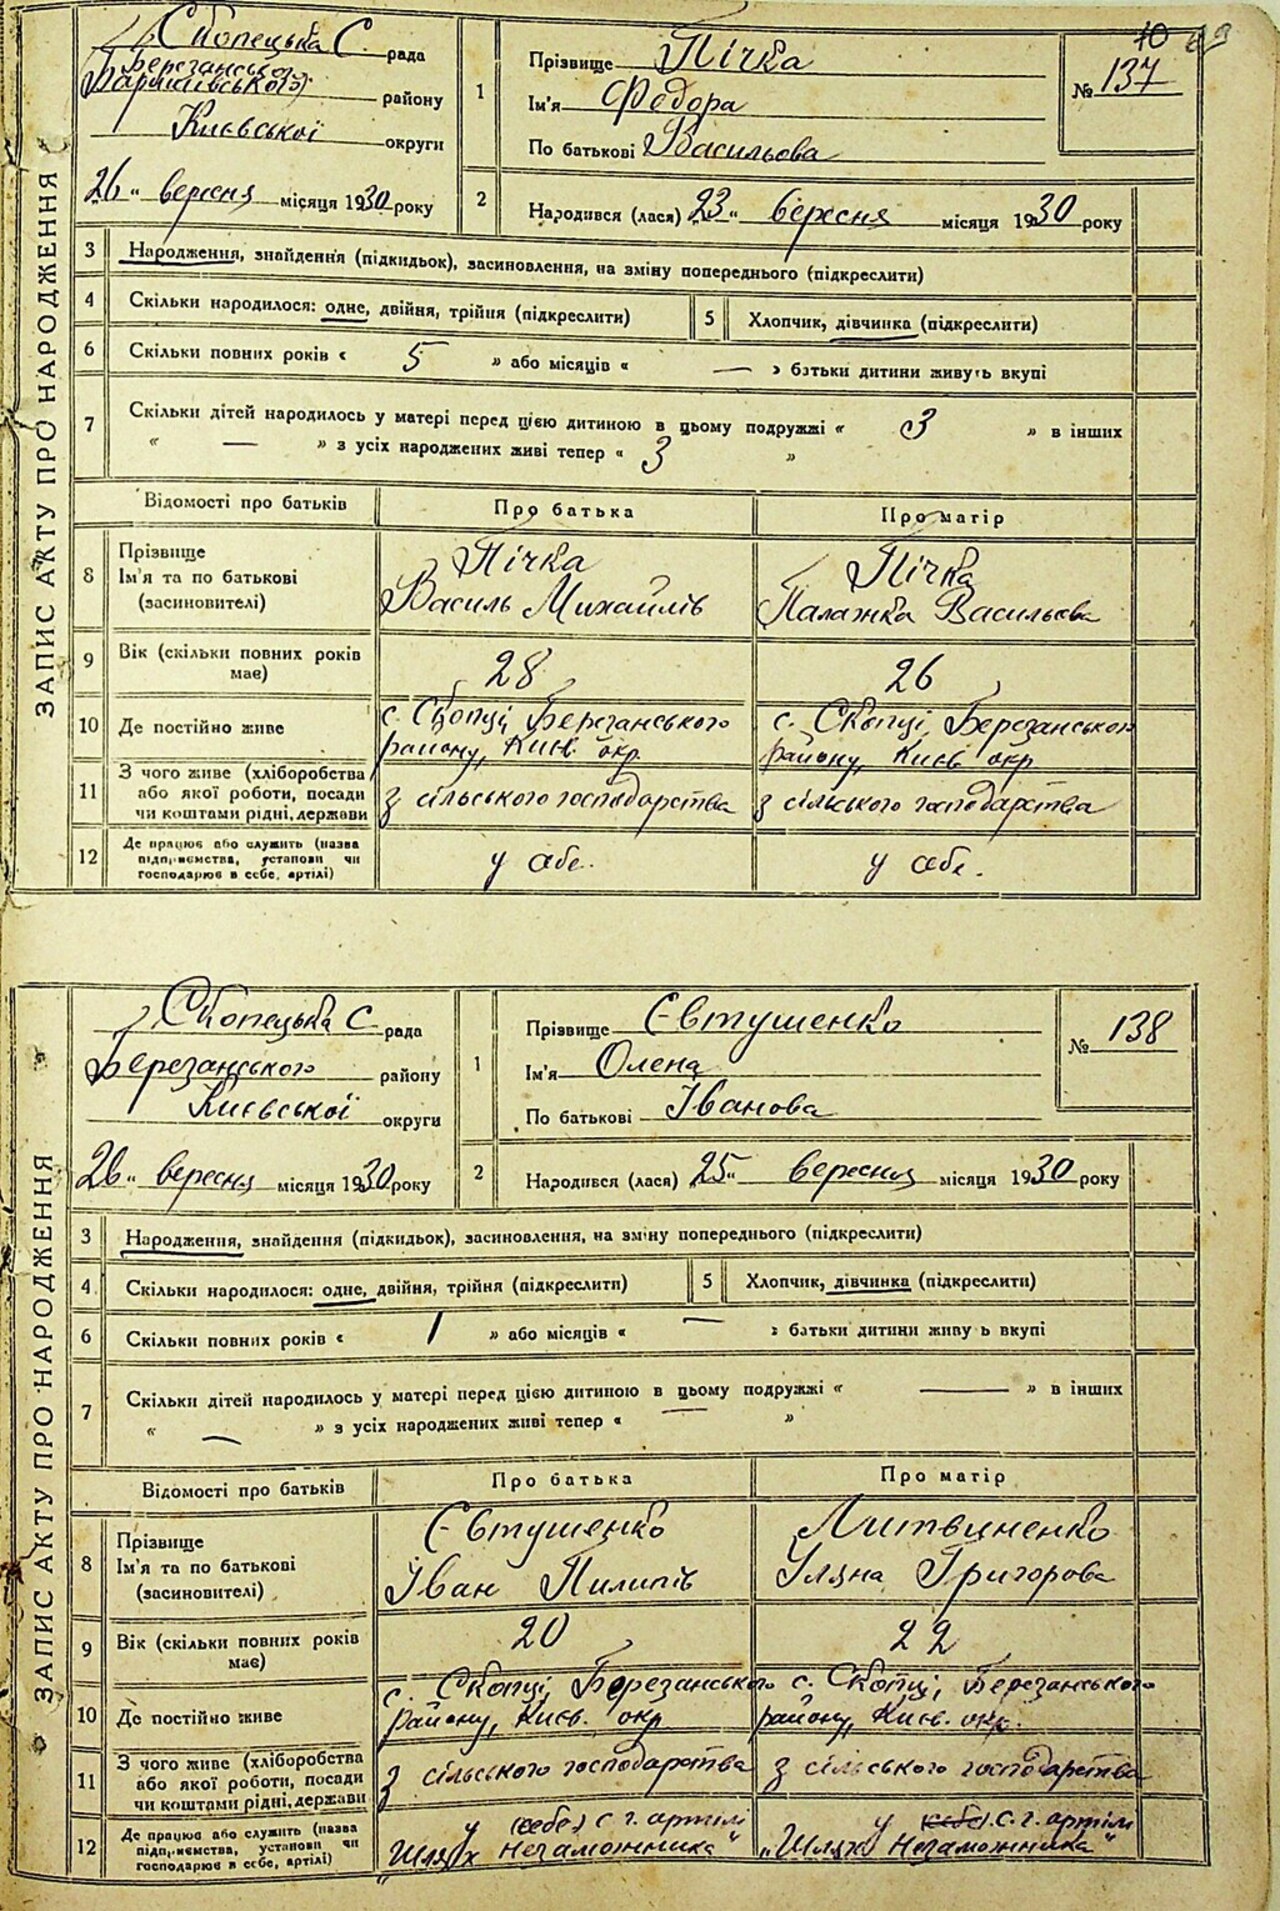 10 69
ЗАПИС АКТУ ПРО НАРОДЖЕННЯ
Скопецька С. рада
Березанського
Баришівського району
Києвської округи
26 " вересня місяця 1930 року
1
Прізвище Пічка
Ім'я Федора
По батькові Васильова
№ 137
2 Народився (лася) 23 " вересня місяця 1930 року
3 Народження, знайдення (підкидьок), засиновлення, на зміну попереднього (підкреслити)
4 Скільки народилося: одне, двійня, трійня (підкреслити) 5 Хлопчик, дівчинка (підкреслити)
6 Скільки повних років « 5 » або місяців « — » батьки дитини живуть вкупі
7 Скільки дітей народилось у матері перед цією дитиною в цьому подружжі « 3 » в інших
« — » з усіх народжених живі тепер « 3 »
Відомості про батьків Про батька Про матір
8 Прізвище
Ім'я та по батькові
(засиновителі)
Пічка
Василь Михайлів
Пічка
Палажка Васильєва
9 Вік (скільки повних років
має)
28 26
10 Де постійно живе
с. Скопці, Березанського
району, Києв. окр.
с. Скопці, Березанського
району, Києв. окр
11 З чого живе (хліборобства
або якої роботи, посади
чи коштами рідні, держави
з сільського господарства з сільського господарства
12 Де працює або служить (назва
підприємства, установи чи
господарює в себе, артілі)
у себе. у себе.
ЗАПИС АКТУ ПРО НАРОДЖЕННЯ
Скопецька С. рада
Березанського району
Києвської округи
26 " вересня місяця 1930 року
1
Прізвище Євтушенко
Ім'я Олена
По батькові Іванова
№ 138
2 Народився (лася) 25 " вересня місяця 1930 року
3 Народження, знайдення (підкидьок), засиновлення, на зміну попереднього (підкреслити)
4 Скільки народилося: одне, двійня, трійня (підкреслити) 5 Хлопчик, дівчинка (підкреслити)
6 Скільки повних років « 1 » або місяців « — » батьки дитини живу ь вкупі
7 Скільки дітей народилось у матері перед цією дитиною в цьому подружжі « — » в інших
« — » з усіх народжених живі тепер « — »
Відомості про батьків Про батька Про матір
8 Прізвище
Ім'я та по батькові
(засиновителі)
Євтушенко
Іван Пилипів
Литвиненко
Уляна Григорова
9 Вік (скільки повних років
має)
20 22
10 Де постійно живе
с. Скопці, Березанського
району, Києв. окр
с. Скопці, Березанського
району, Києв. окр.
11 З чого живе (хліборобства
або якої роботи, посади
чи коштами рідні, держави
з сільського господарства з сільського господарства
12 Де працює або служить (назва
підприємства, установи чи
господарює в себе, артілі)
у (себе) с г. артілі
"Шлях Незаможника"
у (себе). с. г. артілі
"Шлях Незаможника"